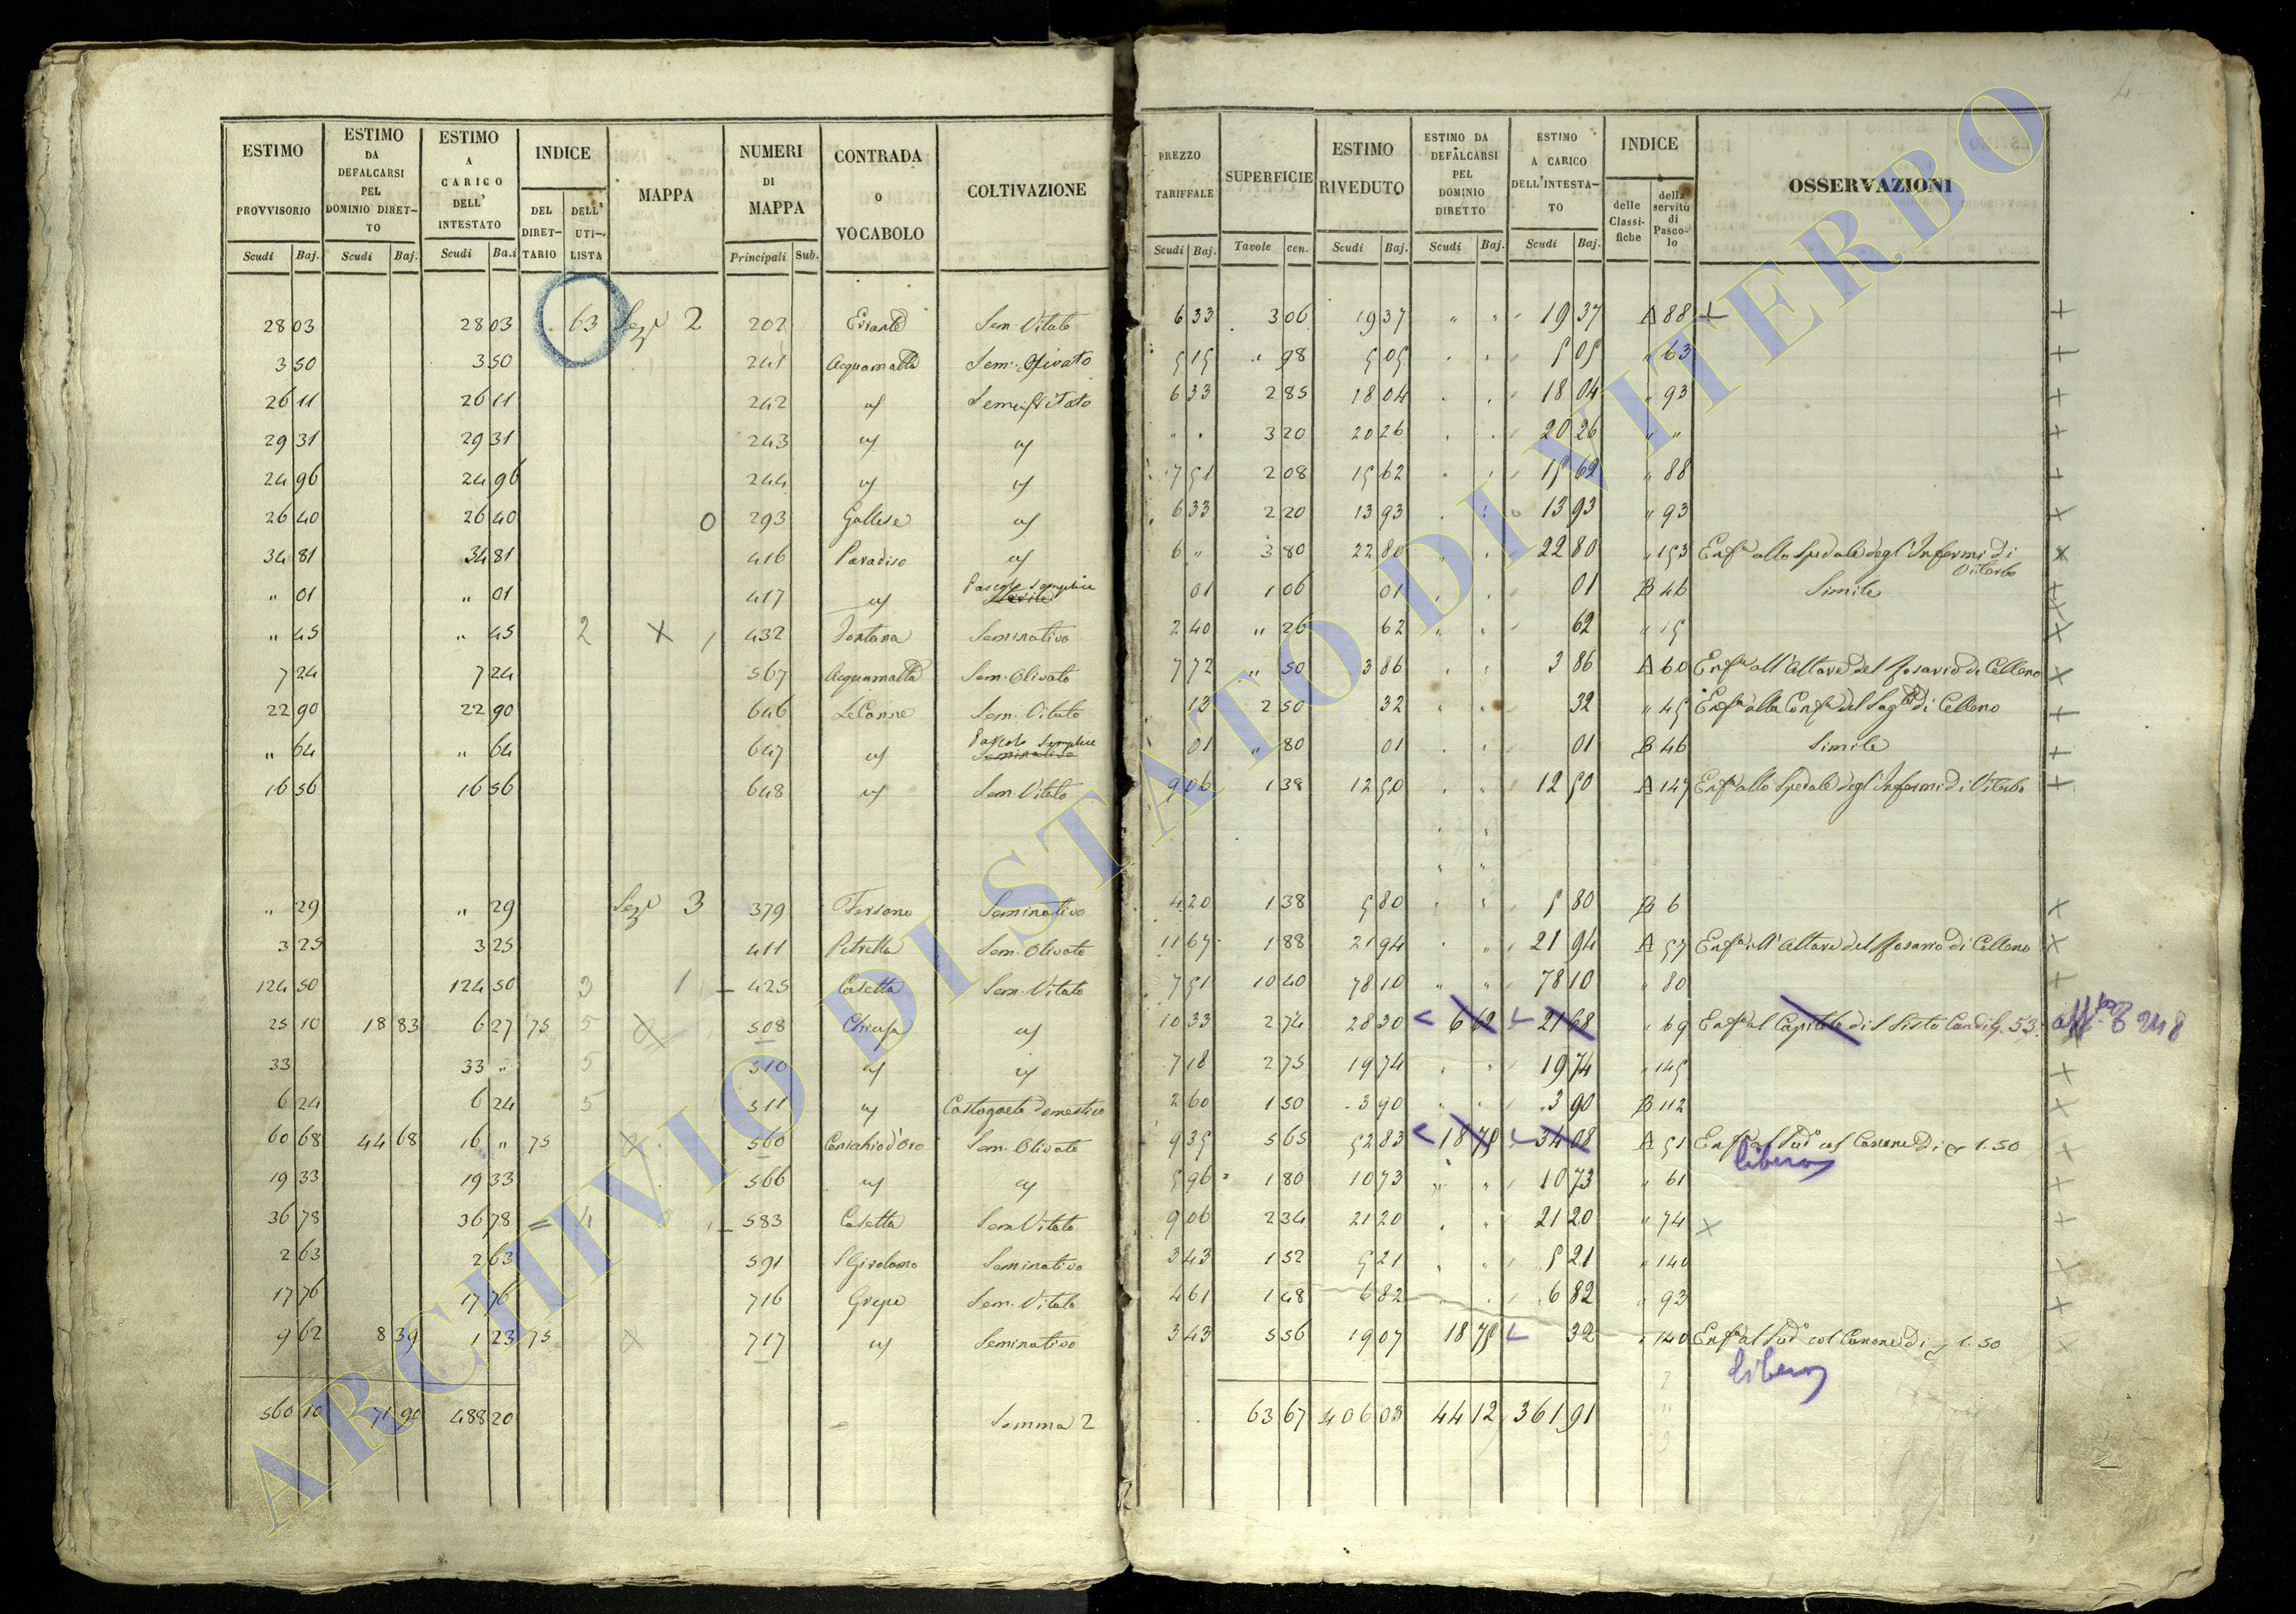 4
ESTIMO PROVVISORIO Scudi Baj. | ESTIMO DA DEFALCARSI PEL DOMINIO DIRETTO Scudi Baj. | ESTIMO A CARICO DELL' INTESTATO Scudi Ba.i | INDICE DEL DIRETTARIO DELL' UTILISTA | MAPPA | NUMERI DI MAPPA Principali Sub. | CONTRADA O VOCABOLO | COLTIVAZIONE | PREZZO TARIFFALE Scudi Baj. | SUPERFICIE Tavole cen. | ESTIMO RIVEDUTO Scudi Baj. | ESTIMO DA DEFALCARSI PEL DOMINIO DIRETTO Scudi Baj. | ESTIMO A CARICO DELL'INTESTATO Scudi Baj. | INDICE delle Classifiche della servitù di Pascolo | OSSERVAZIONI
28 03 28 03 63 Sez.e 2 202 Sem. Vitato 6 33 3 06 19 37 " " 19 37 A 88 +
3 50 3 50 241 Acquamatta Sem. Olivato 5 15 " 98 5 05 " " 5 05 " 63 +
26 11 26 11 242 " Sem. Vitato 6 33 2 85 18 04 " " 18 04 " 93 +
29 31 29 31 243 " " " " 3 20 20 26 " " 20 26 " " +
24 96 24 96 244 " " 7 51 2 08 15 62 " " 15 62 " 88 +
26 40 26 40 0 293 Gallese " 6 33 2 20 13 93 " " 13 93 " 93 +
34 81 34 81 416 Paradiso " 6 " 3 80 22 80 " " 22 80 " 153 Enf.a allo Spedale degl'Infermi di Viterbo x
" 01 " 01 417 " Pascolo semplice 01 1 06 01 " " 01 B 46 Simile x
" 45 " 45 2 x 432 Fontana Seminativo 2 40 " 26 62 " " 62 " 15 x
7 24 7 24 567 Acquamatta Sem. Olivato 7 72 " 50 3 86 " " 3 86 A 60 Enf.a all'Altare del Rosario di Celleno x
22 90 22 90 646 Le Canne Sem. Vitato 13 2 50 32 " " 32 " 45 Enf.a alla Conf.a del Sag.to di Celleno +
" 64 " 64 647 " Pascolo semplice Seminativo 01 " 80 01 " " 01 B 46 Simile +
16 56 16 56 648 " Sem. Vitato 9 06 1 38 12 50 " " 12 50 A 147 Enf.a allo Spedale degl'Infermi di Viterbo +
" 29 " 29 Sez.e 3 379 Seminativo 4 20 1 38 5 80 " " 5 80 B 6 x
3 25 3 25 411 Petrella Sem. Olivato 11 67 1 88 21 94 " " 21 94 A 57 Enf.a all'Altare del Rosario di Celleno x
124 50 124 50 3 1 425 Casetta Sem. Vitato 7 51 10 40 78 10 " " 78 10 " 80 +
25 10 18 83 6 27 75 5 x 508 Chiusa " 10 33 2 74 28 30 6 62 21 68 " 69 Enf.a al Capitolo di S. Sisto 53 248
33 33 " 5 510 " " 7 18 2 75 19 74 " " 19 74 " 145 x
6 24 6 24 5 511 " Castagneto domestico 2 60 1 50 3 90 " " 3 90 B 112 x
60 68 44 68 16 " 75 x 560 Sem. Olivato 9 35 5 65 52 83 18 75 34 08 A 51 Enf.a al Sud.o col Canone di 1.50 x
libero
19 33 19 33 566 " " 5 96 1 80 10 73 " " 10 73 " 61 x
36 78 36 78 = 4 583 Casetta Sem. Vitato 9 06 2 34 21 20 " " 21 20 " 74 x +
2 63 2 63 591 S. Girolamo Seminativo 3 43 1 52 5 21 " " 5 21 " 140 x
17 76 17 76 716 Grepe Sem. Vitato 4 61 1 48 6 82 " " 6 82 " 93 +
9 62 8 39 1 23 75 x 717 " Seminativo 3 43 5 56 19 07 18 75 32 " 140 Enf.a al Sud.o col Canone di 1.50 x
libero
560 10 71 90 488 20 Somma 2 63 67 406 03 44 12 361 91
ARCHIVIO DI STATO DI VITERBO